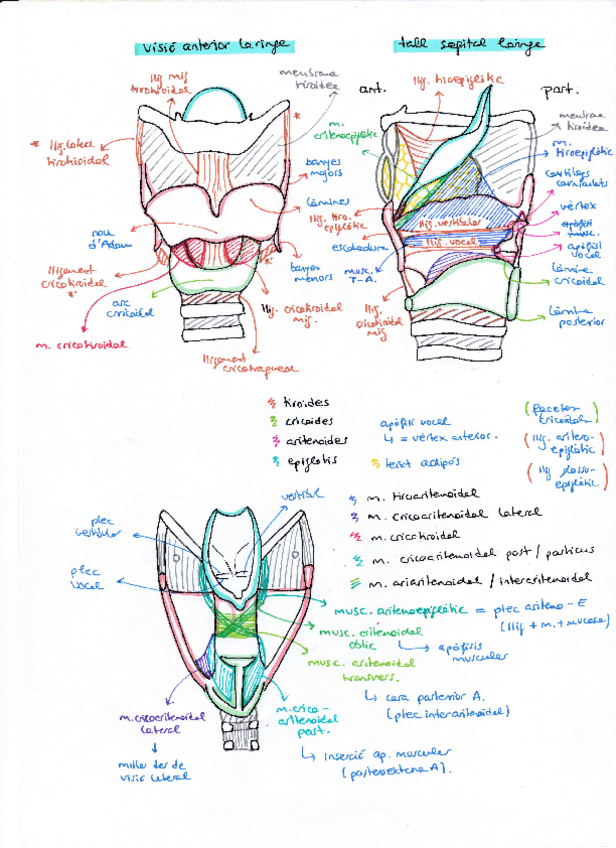 visió anterior laringe
tall sagital laringe
llig mig
tirohioidal
membrana
tiroidea
ant.
llig. hioepiglòtic
post.
* llig. lateral
tirohioidal
*
m.
aritenoepiglòtic
banyes
majors
làmines
llig. tiro.
epiglòtic
escotadura
nou
d'Adam
lligament
cricotiroidal
*
banyes
menors
musc.
T-A.
arc
cricoidal
m. cricotiroidal
llig. cricotiroidal
mig.
lligament
cricotraqueal
llig.
cricotiroidal
mig
llig. vestibular
llig. vocal
membrana
tiroidea
m.
tiroepiglòtic
cartílags
corniculats
vèrtex
apòfisi
musc.
apòfisi
vocal
làmina
cricoidal
làmina
posterior
tiroides
cricoides
aritenoides
epiglotis
apòfisi vocal
↳ = vèrtex anterior.
teixit adipós
(facetes
cricoidals)
(llig. ariteno-
epiglòtic)
(llig glosso-
epiglòtic)
m. tiroaritenoidal
m. cricoaritenoidal lateral
m. cricotiroidal
m. cricoaritenoidal post / posticus
m. ariaritenoidal / interaritenoidal
vestíbul
plec
vestibular
plec
vocal
musc. aritenoepiglòtic = plec ariteno-E
(llig + m. + mucosa)
musc. aritenoidal
oblic
↳ apòfisis
muscular
musc. aritenoidal
transvers.
↳ cara posterior A.
(plec interaritenoidal)
m. cricoaritenoidal
lateral
↓
millor des de
visió lateral
m. crico-
aritenoidal
post.
↳ inserció ap. muscular
(posteroexterna A).